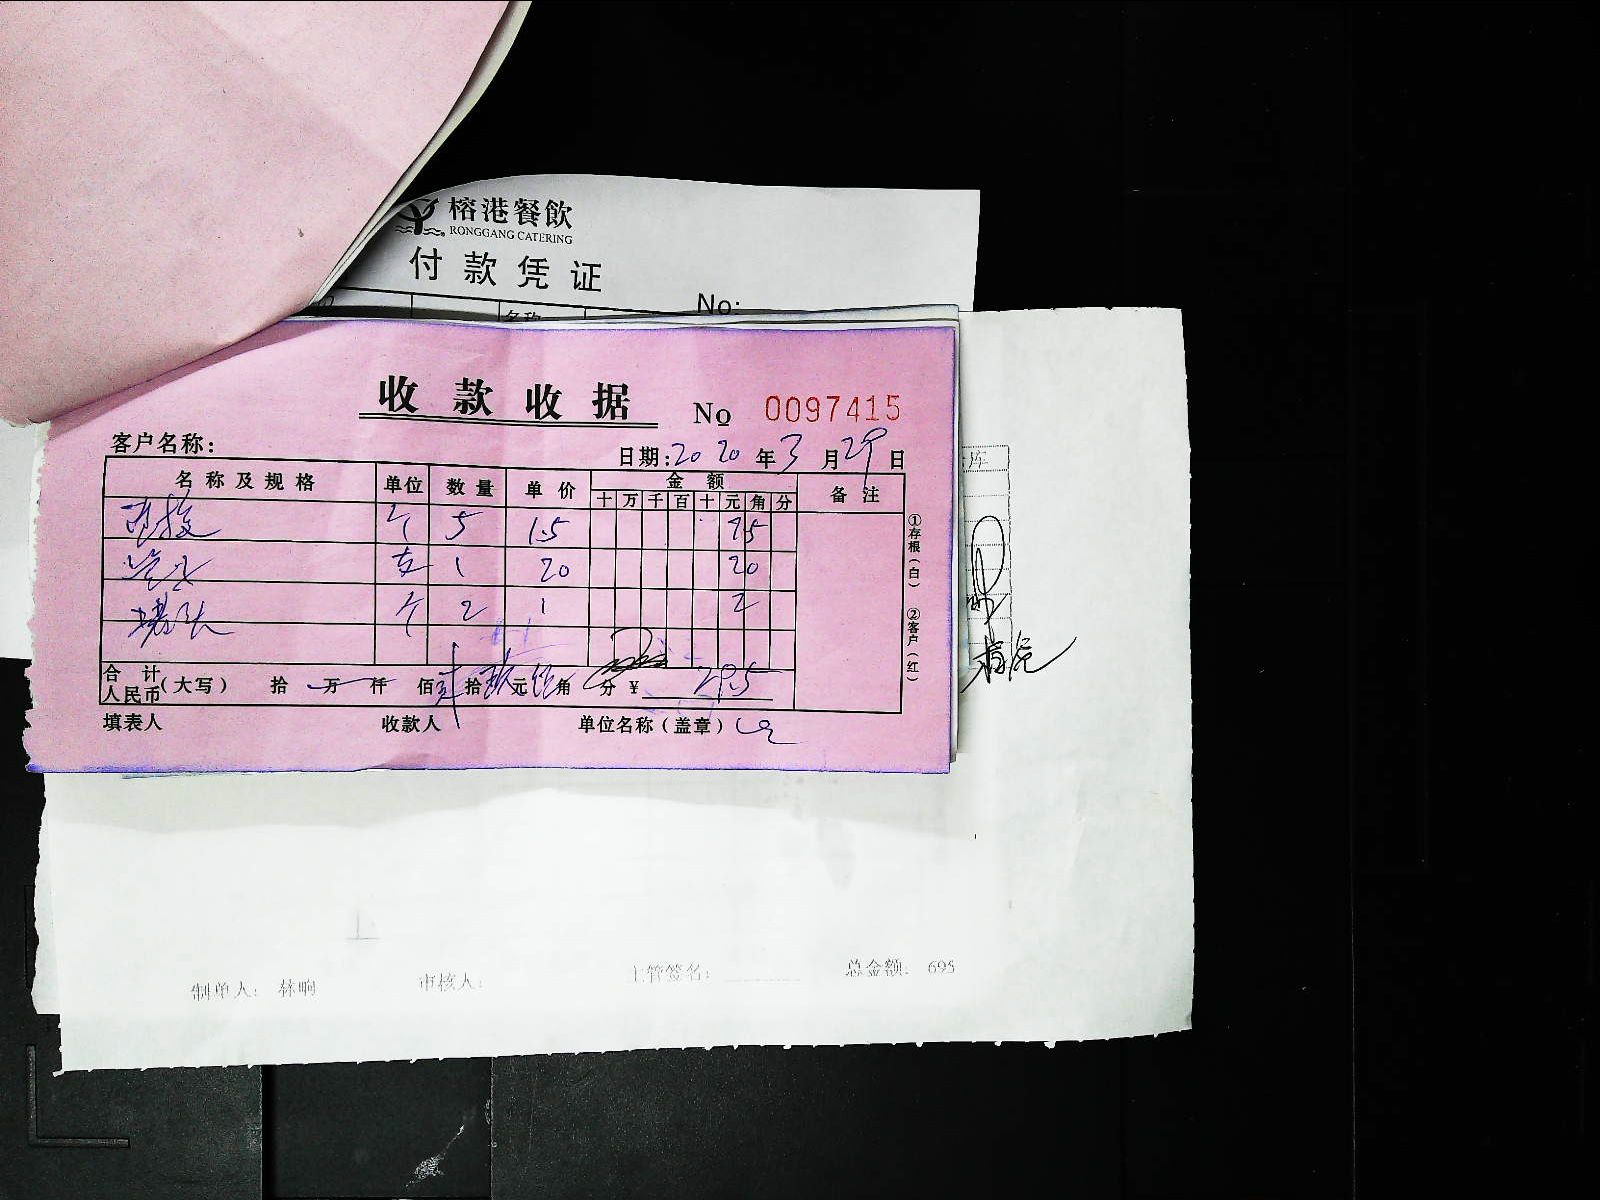 榕港餐飲
RONGGANG CATERING
付款凭证
No:
名称
收款收据 No 0097415
客户名称: 日期:2020年3月29日
名称及规格 单位 数量 单价 金额 备注
十 万 千 百 十 元 角 分
个 5 1.5 7.5
支 1 20 20
堵头 个 2 1 2
合计人民币(大写) 拾 万 仟 佰 贰拾 玖元 伍角 分 ¥ 29.5
填表人 收款人 单位名称(盖章)
①存根(白) ②客户(红)
库
制单人: 林晌 审核人: 主管签名: 总金额: 695